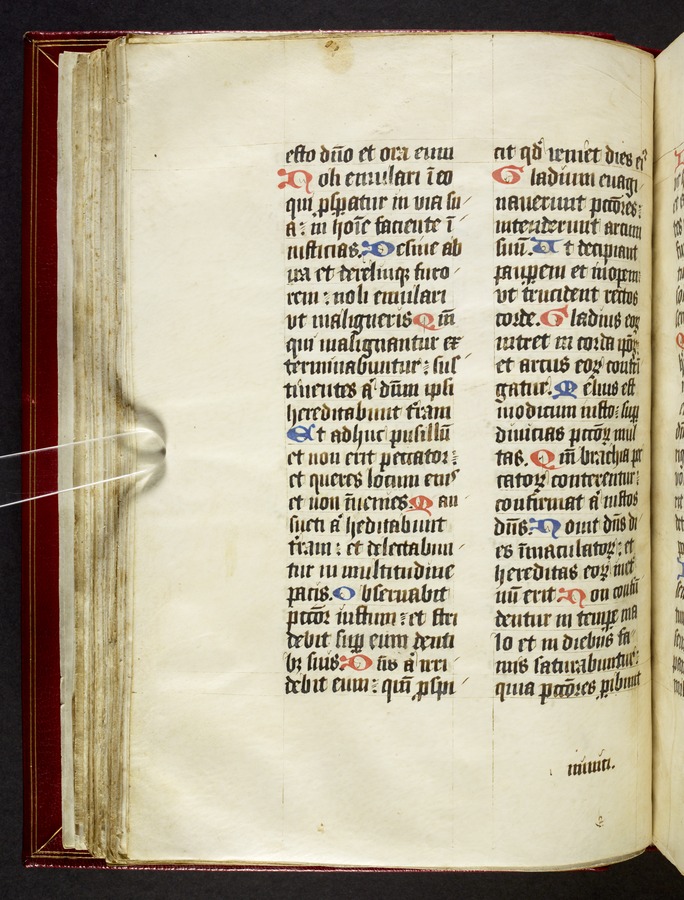 esto dn̄o et ora eum
Noli emulari ī eo
qui ꝓsꝑatur in via su
a: in hoīe faciente ī
iusticias. Desine ab
ira et derelinqꝫ furo
rem: noli emulari
vt maligneris Qm̄
qui malignantur ex
terminabuntur: sus
tinentes aū dūm ipsi
hereditabunt t̄ram
Et adhuc pusillū
et non erit peccator:
et queres locum eius
et non īuenies. Man
sueti aū heditabunt
t̄ram: et delectabun
tur in multitudine
pacis. Obseruabit
pctōr iustum: et stri
debit suꝑ eum denti
bꝫ suis: Dn̄s aū irri
debit eum: qm̄ ꝓspi
cit qd̄ veniet dies eiꝰ
Gladium euagi
nauerunt pctōres:
intenderunt arcum
suū. Ut decipiant
pauꝑem et inopem:
vt trucident rectos
corde. Gladius eoꝝ
intret in corda ipoꝝ:
et arcus eoꝝ confrī
gatur. Melius est
modicum iusto: suꝑ
diuicias pctōꝝ mul
tas. Qm̄ brachia pec
catoꝝ conterentur:
confirmat aū iustos
dn̄s: Nouit dn̄s di
es īmaculatoꝝ: et
hereditas eoꝝ in et
nū erit: Non confū
dentur in tempe ma
lo et in diebus fa
mis saturabuntur:
quia pctōres ꝑibunt
inimici.